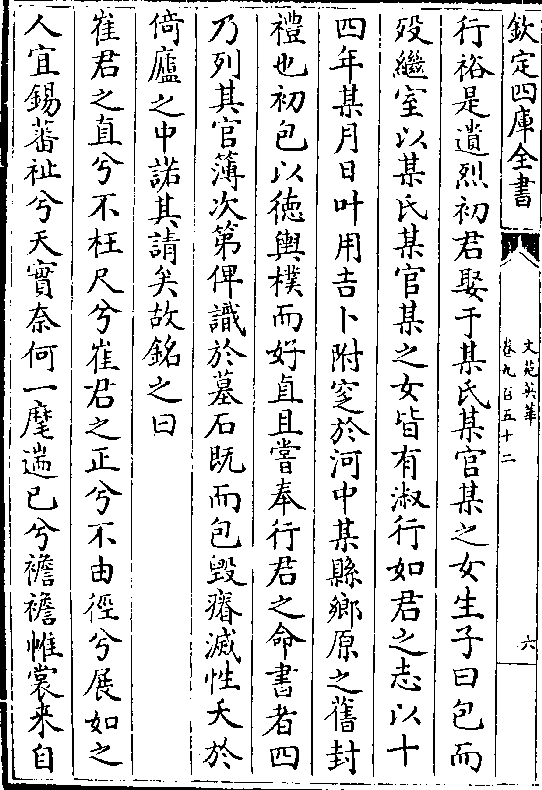 欽定四庫全書
文苑英華
卷九百五十二
六
行裕是遺烈初君娶于某氏某官某之女生子曰包而
歿繼室以某氏某官某之女皆有淑行如君之志以十
四年某月日叶用吉卜附窆於河中某縣鄉原之舊封
禮也初包以徳輿樸而好直且嘗奉行君之命書者四
乃列其官簿次第俾識於墓石既而包毁瘠滅性夭於
倚廬之中諾其請矣故銘之曰
崔君之直兮不枉尺兮崔君之正兮不由徑兮展如之
人宜錫蕃祉兮天實奈何一麾遄已兮襜襜帷裳来自